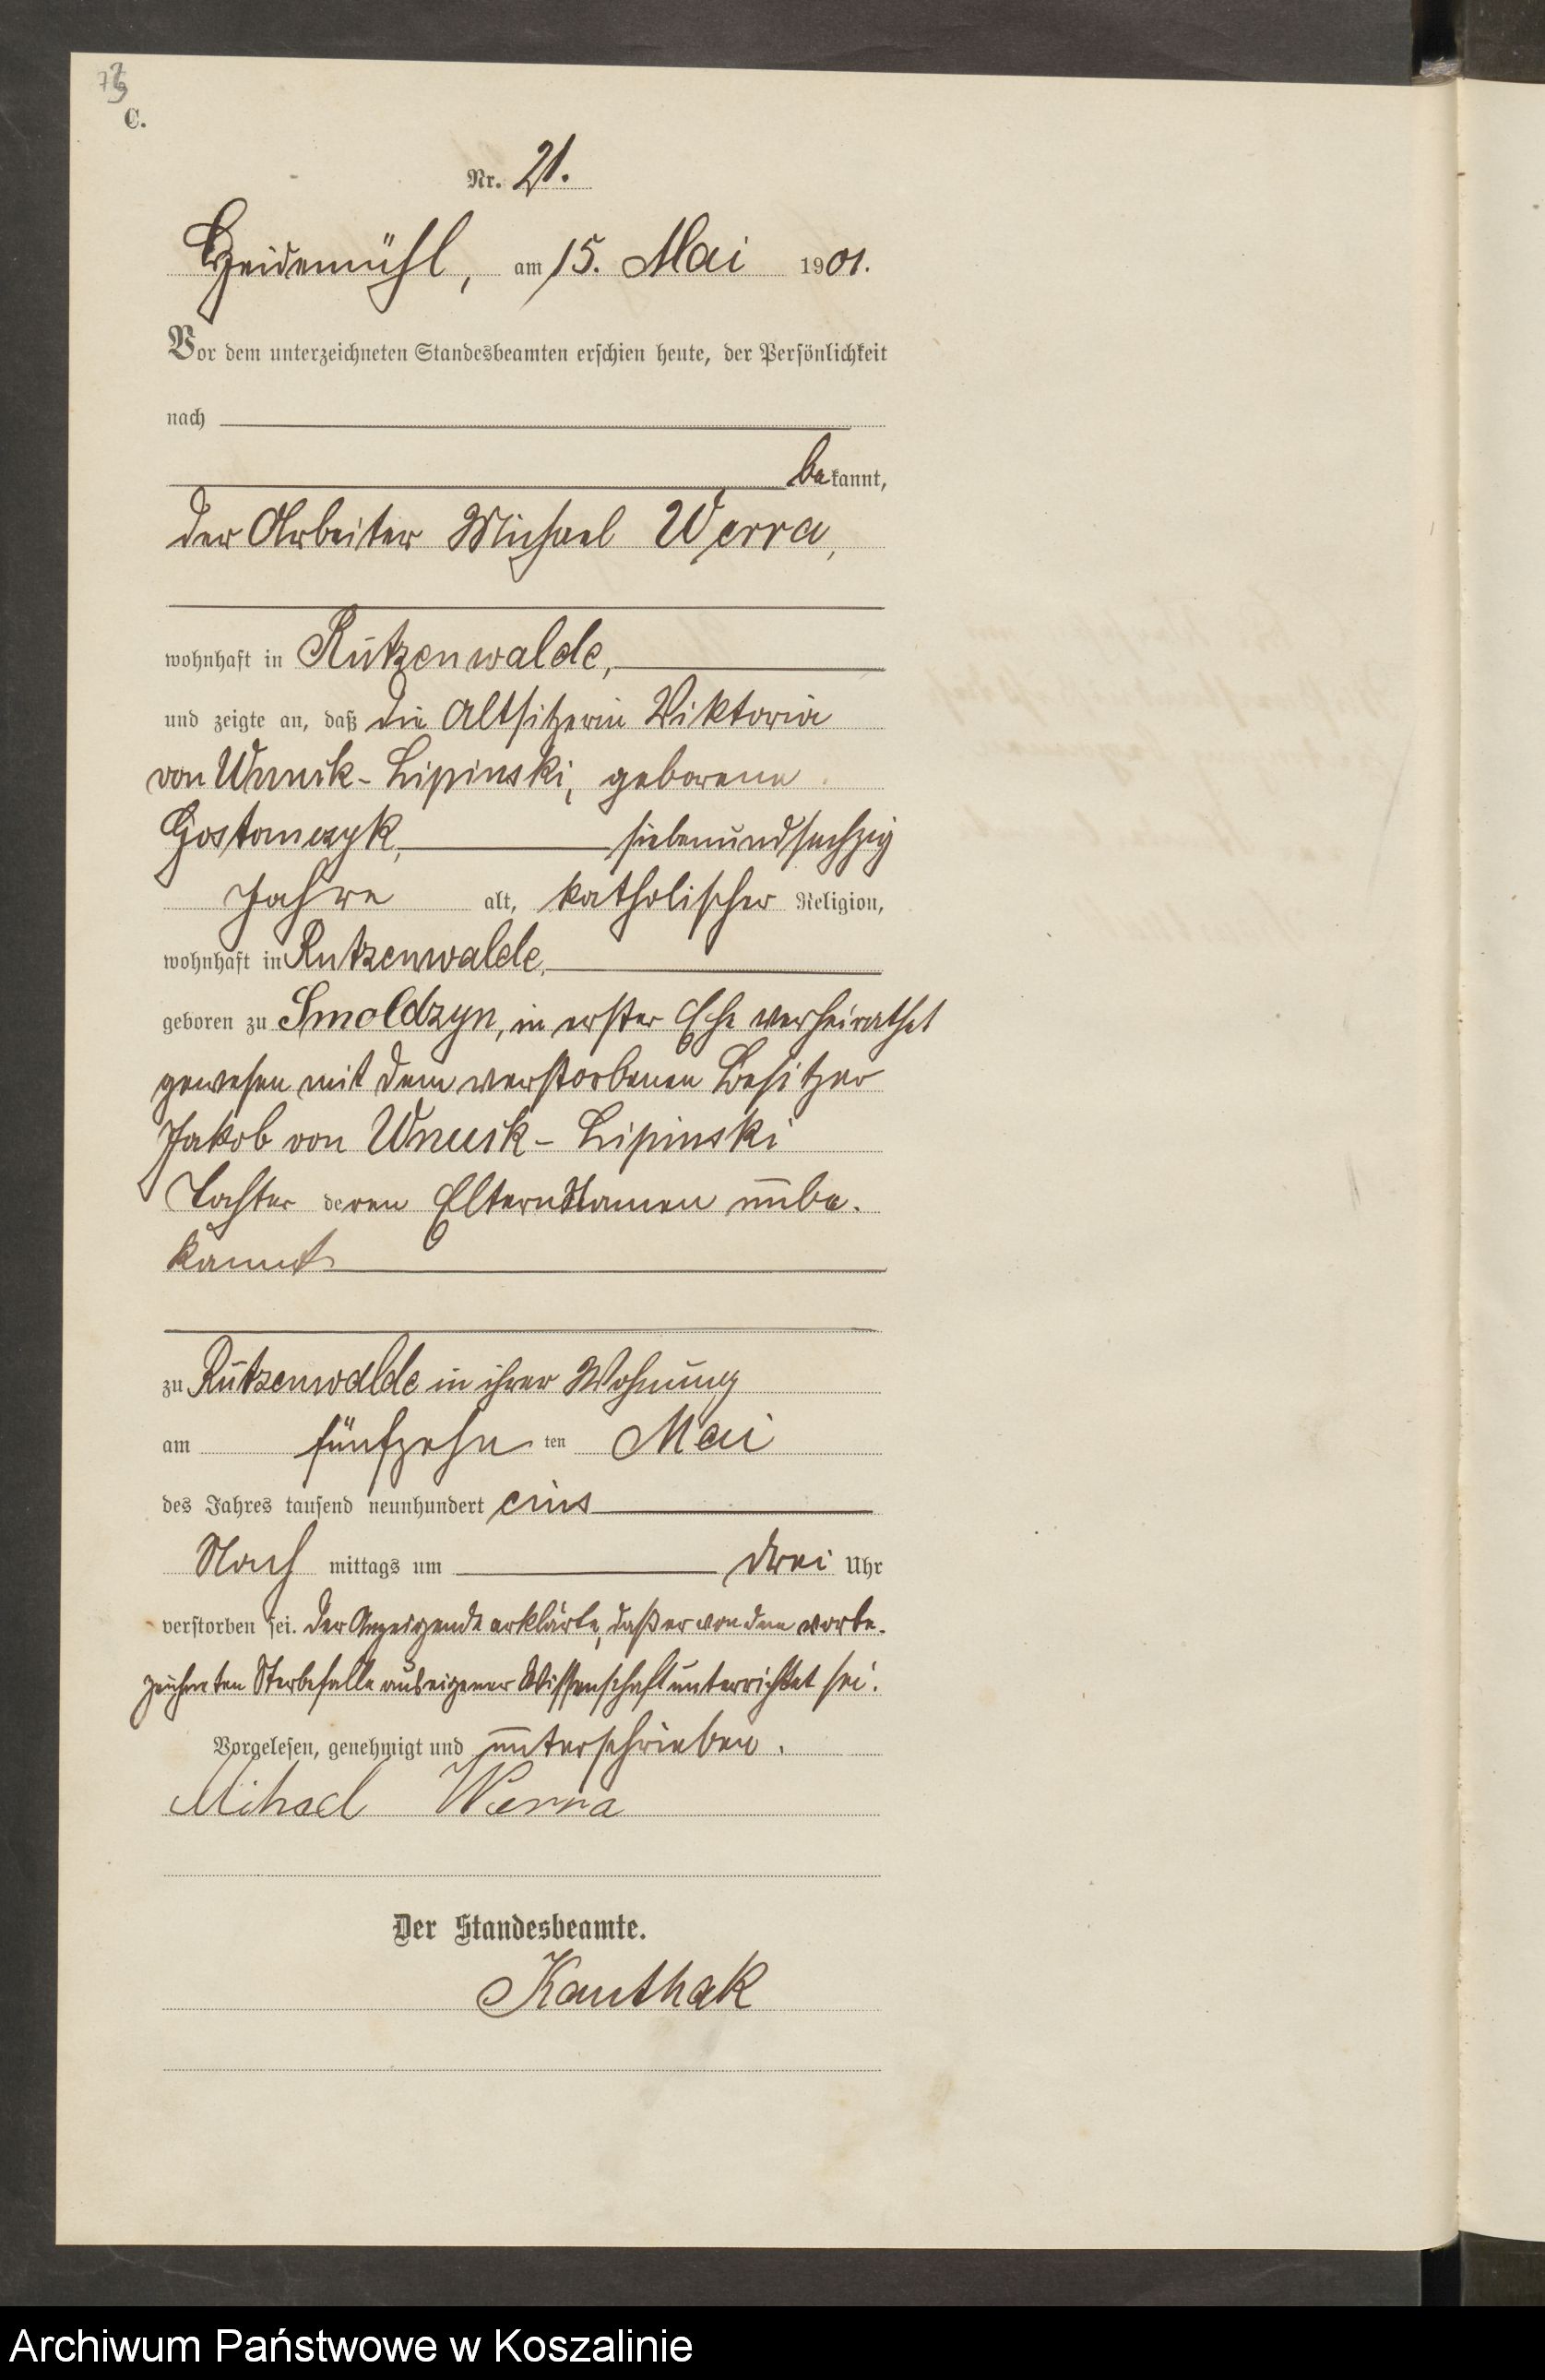 73
C.
Nr. 21.
Heidemühl, am 15. Mai 1901.
Vor dem unterzeichneten Standesbeamten erschien heute, der Persönlichkeit
nach
bekannt,
der Arbeiter Michael Werra,
wohnhaft in Rützenwalde,
und zeigte an, daß die Altsitzerin Viktoria
von Wnuck-Lipinski, geborene
Gostomczyk, siebenundsechzig
Jahre alt, katholischer Religion,
wohnhaft in Rutzenwalde,
geboren zu Smoldzyn, in erster Ehe verheirathet
gewesen mit dem verstorbenen Besitzer
Jakob von Wnuck-Lipinski
Tochter deren Eltern Namen unbe.
kannt
zu Rützenwalde in ihrer Wohnung
am fünfzehn ten Mai
des Jahres tausend neunhundert eins
Nach mittags um drei Uhr
verstorben sei. Der Anzeigende erklärte, daß er von dem vorbe.
zeichneten Sterbefalle aus eigener Wissenschaft unterrichtet sei.
Vorgelesen, genehmigt und unterschrieben.
Mihael Werra
Der Standesbeamte.
Kauthak
Archiwum Państwowe w Koszalinie